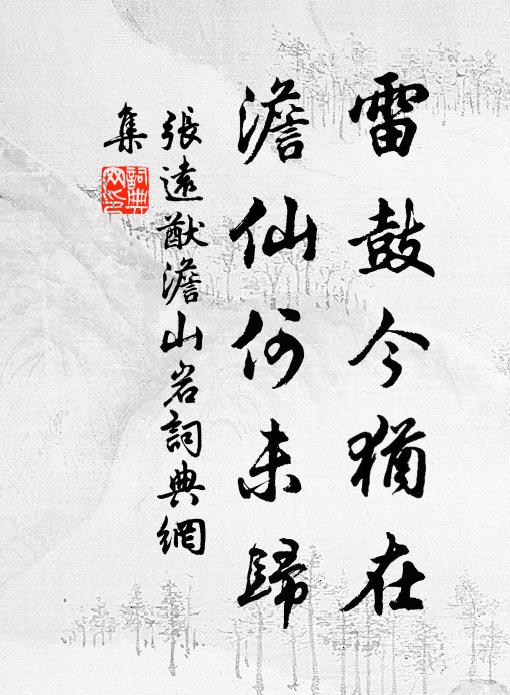 雷鼓今猶在
澹仙何未歸
張遠猷澹山岩詞典網
集
詞典
網印